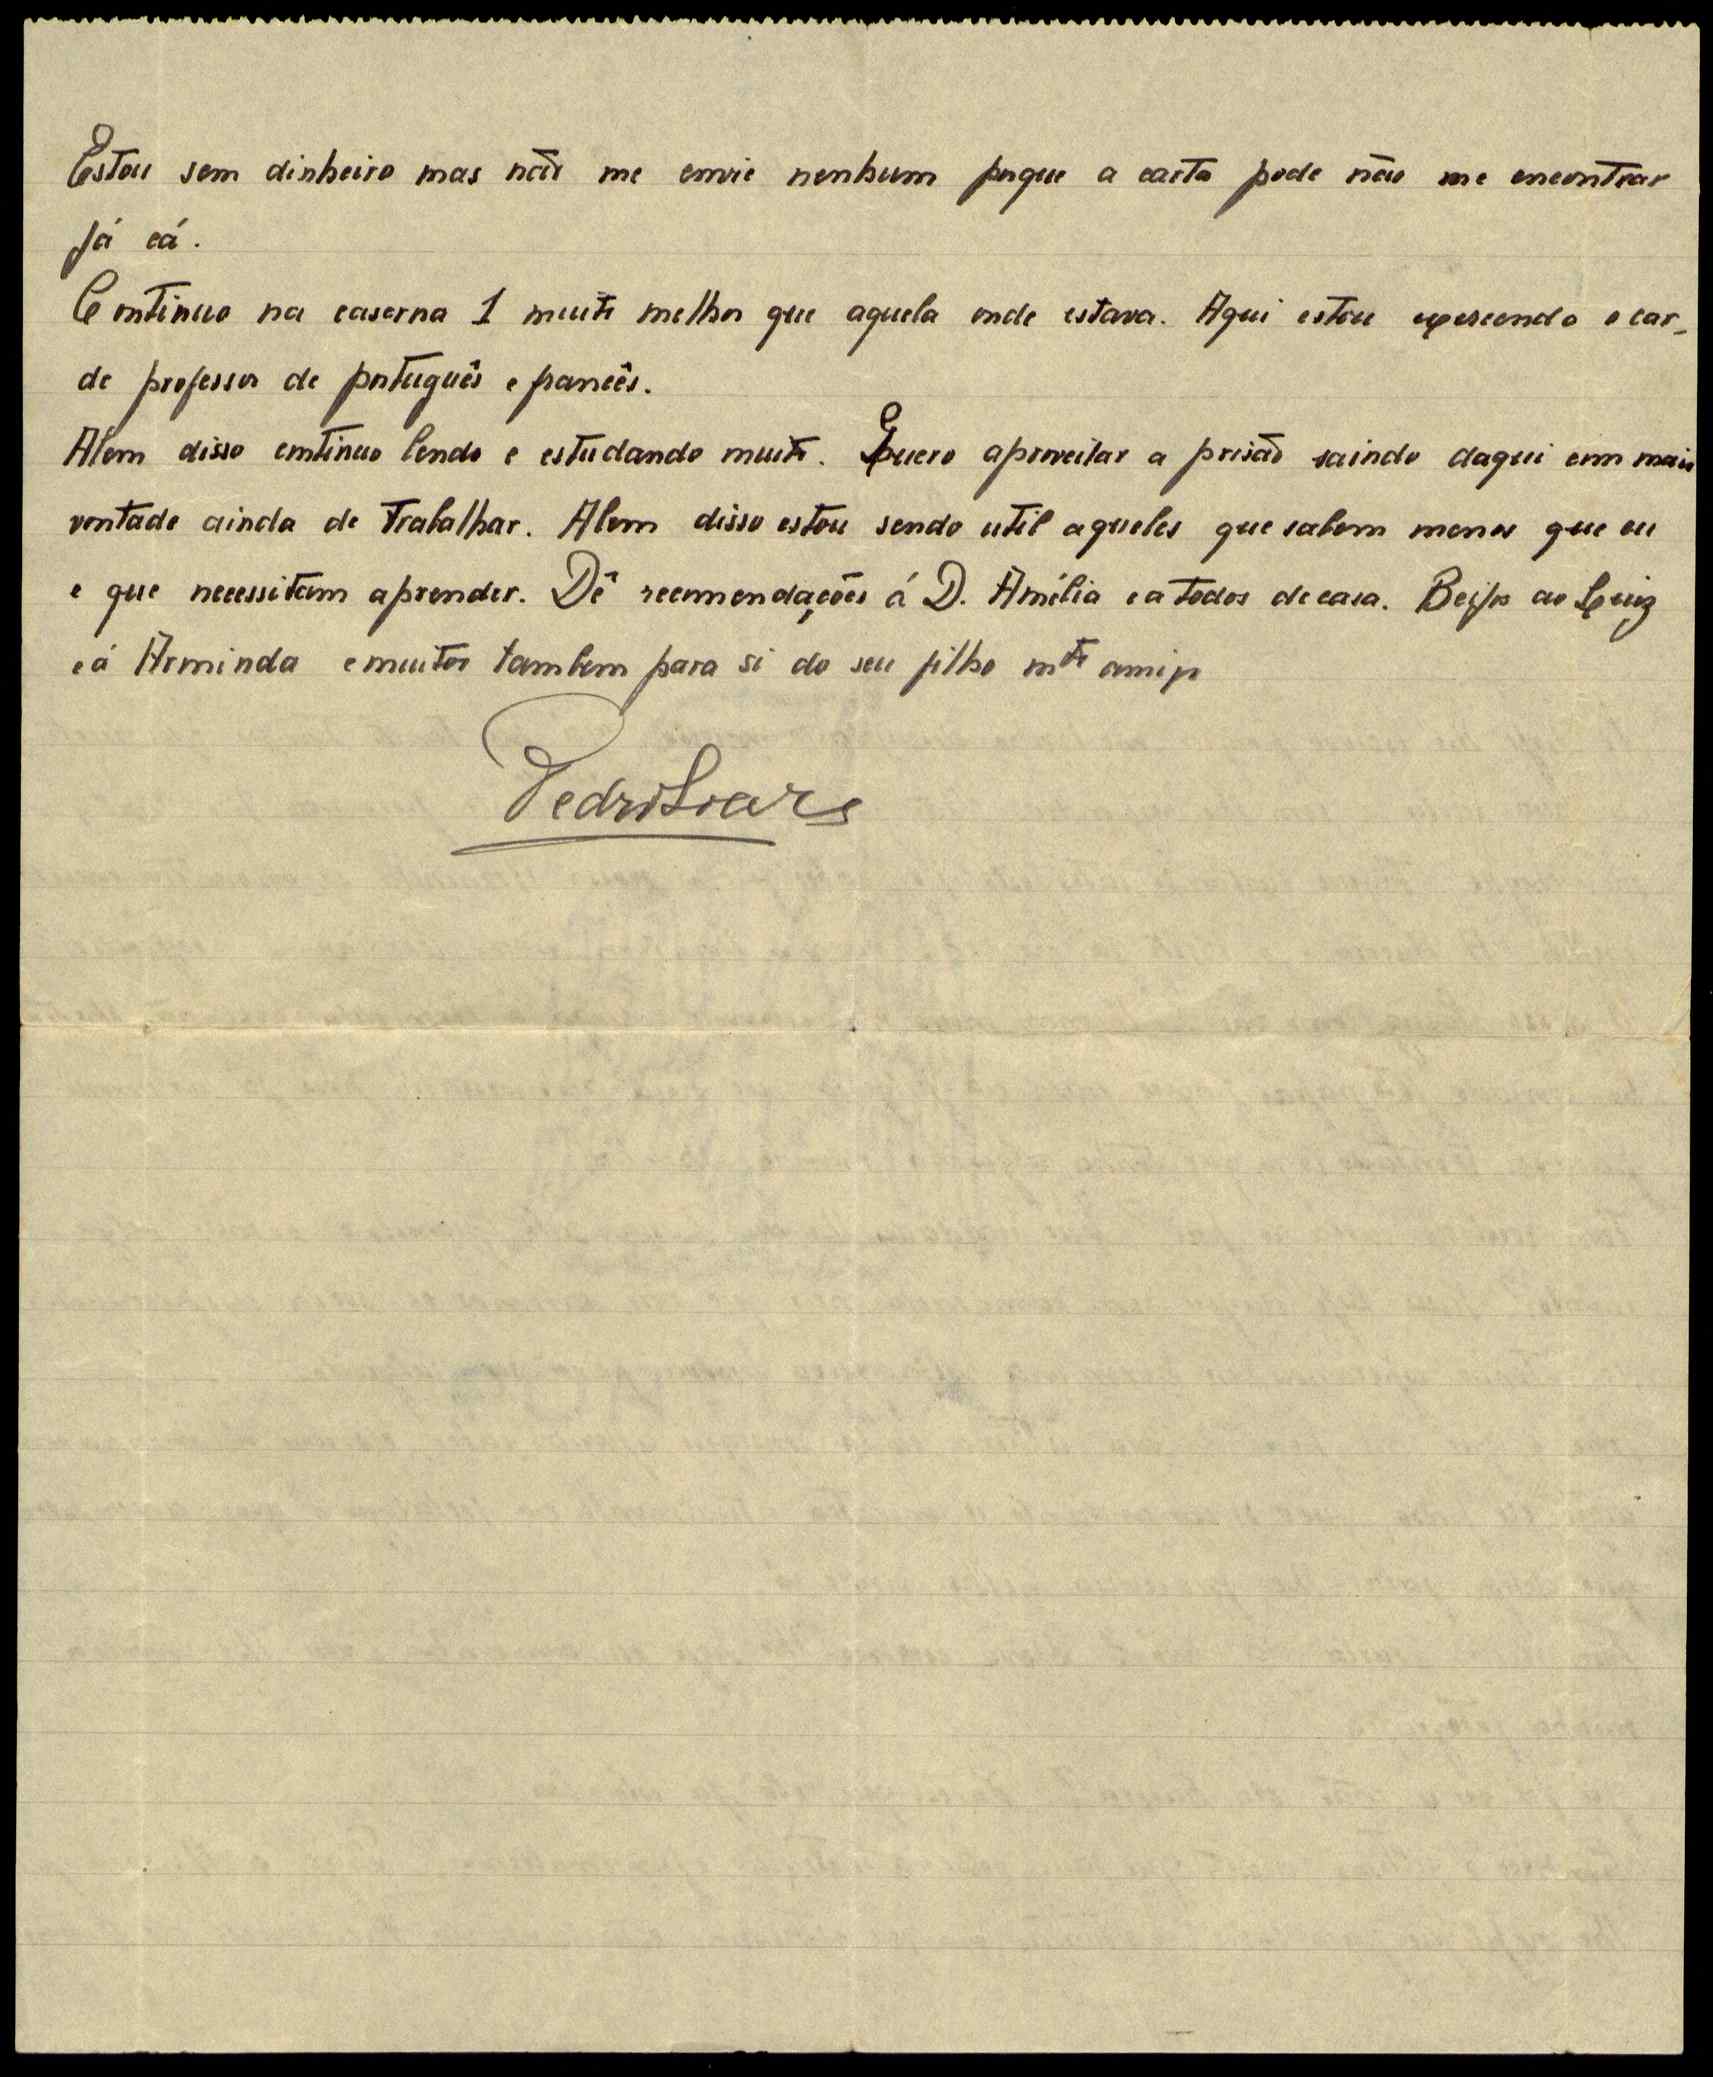 Estou sem dinheiro mas não me envie nenhum porque a carta pode não me encontrar
já cá.
Continuo na caserna 1 muito melhor que aquela onde estava. Aqui estou exercendo o car-
de professor de português e francês.
Alem disso continuo lendo e estudando muito. Quero aproveitar a prisão saindo daqui com mais
vontade ainda de trabalhar. Alem disso estou sendo util aqueles que sabem menos que eu
e que necessitam aprender. Dê recomendações á D. Amélia e a todos de casa. Beijos ao Luiz
e á Arminda e muitos tambem para si do seu filho mto amigo
Pedro Soares